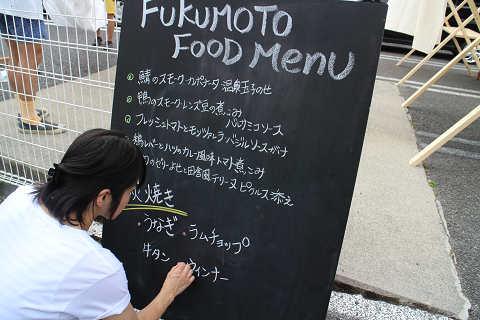 FUKUMOTO
FOOD MENU
鯖のスモーク・カポナータ 温泉玉子のせ
鴨のスモーク・レンズ豆の煮こみ
バルサミコソース
フレッシュトマトとモッツァレラ・バジルソースがけ
鶏レバーとハツのカレー風味トマト煮こみ
のゼリーよせと田舎風テリーヌ ピクルス添え
火焼き
・うなぎ ・ラムチョップ
牛タン ウィンナー